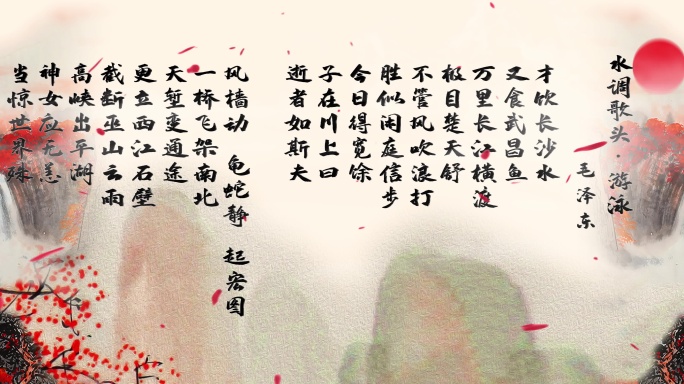 水调歌头·游泳
毛泽东
才饮长沙水
又食武昌鱼
万里长江横渡
极目楚天舒
不管风吹浪打
胜似闲庭信步
今日得宽馀
子在川上曰
逝者如斯夫
风樯动 龟蛇静 起宏图
一桥飞架南北
天堑变通途
更立西江石壁
截断巫山云雨
高峡出平湖
神女应无恙
当惊世界殊